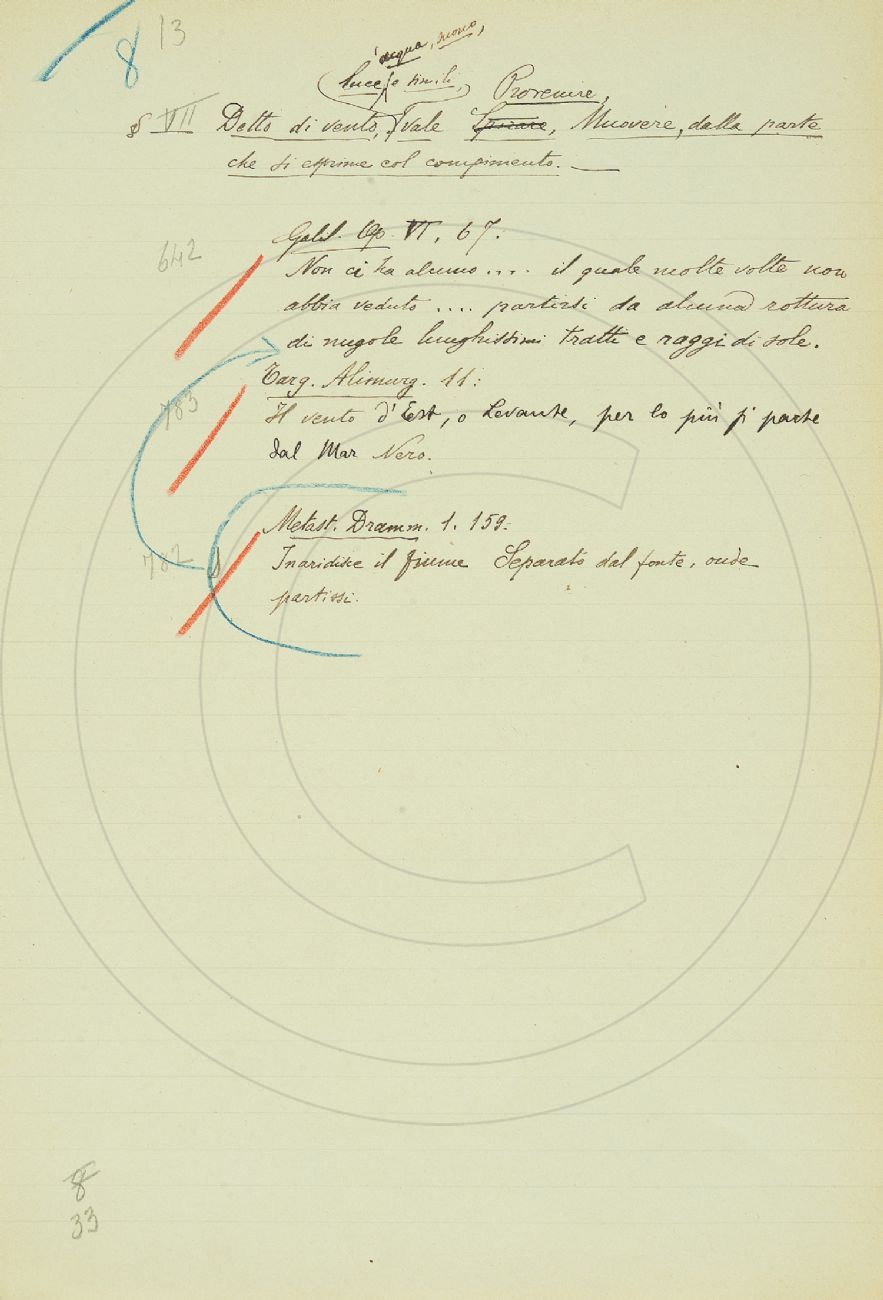 8 13
acqua, suono,
luce, e simili,
Provenire,
§ VII Detto di vento, vale Spirare, Muovere, dalla parte
che si esprime col compimento. —
642
Galil. Op. VI, 67:
Non ci ha alcuno .... il quale molte volte non
abbia veduto .... partirsi da alcuna rottura
di nugole lunghissimi tratti e raggi di sole.
783
Targ. Alimurg. 11:
Il vento d'Est, o Levante, per lo più si parte
dal Mar Nero.
Metast. Dramm. 1. 159:
782
Inaridisce il fiume Separato dal fonte, onde
partissi.
8
33